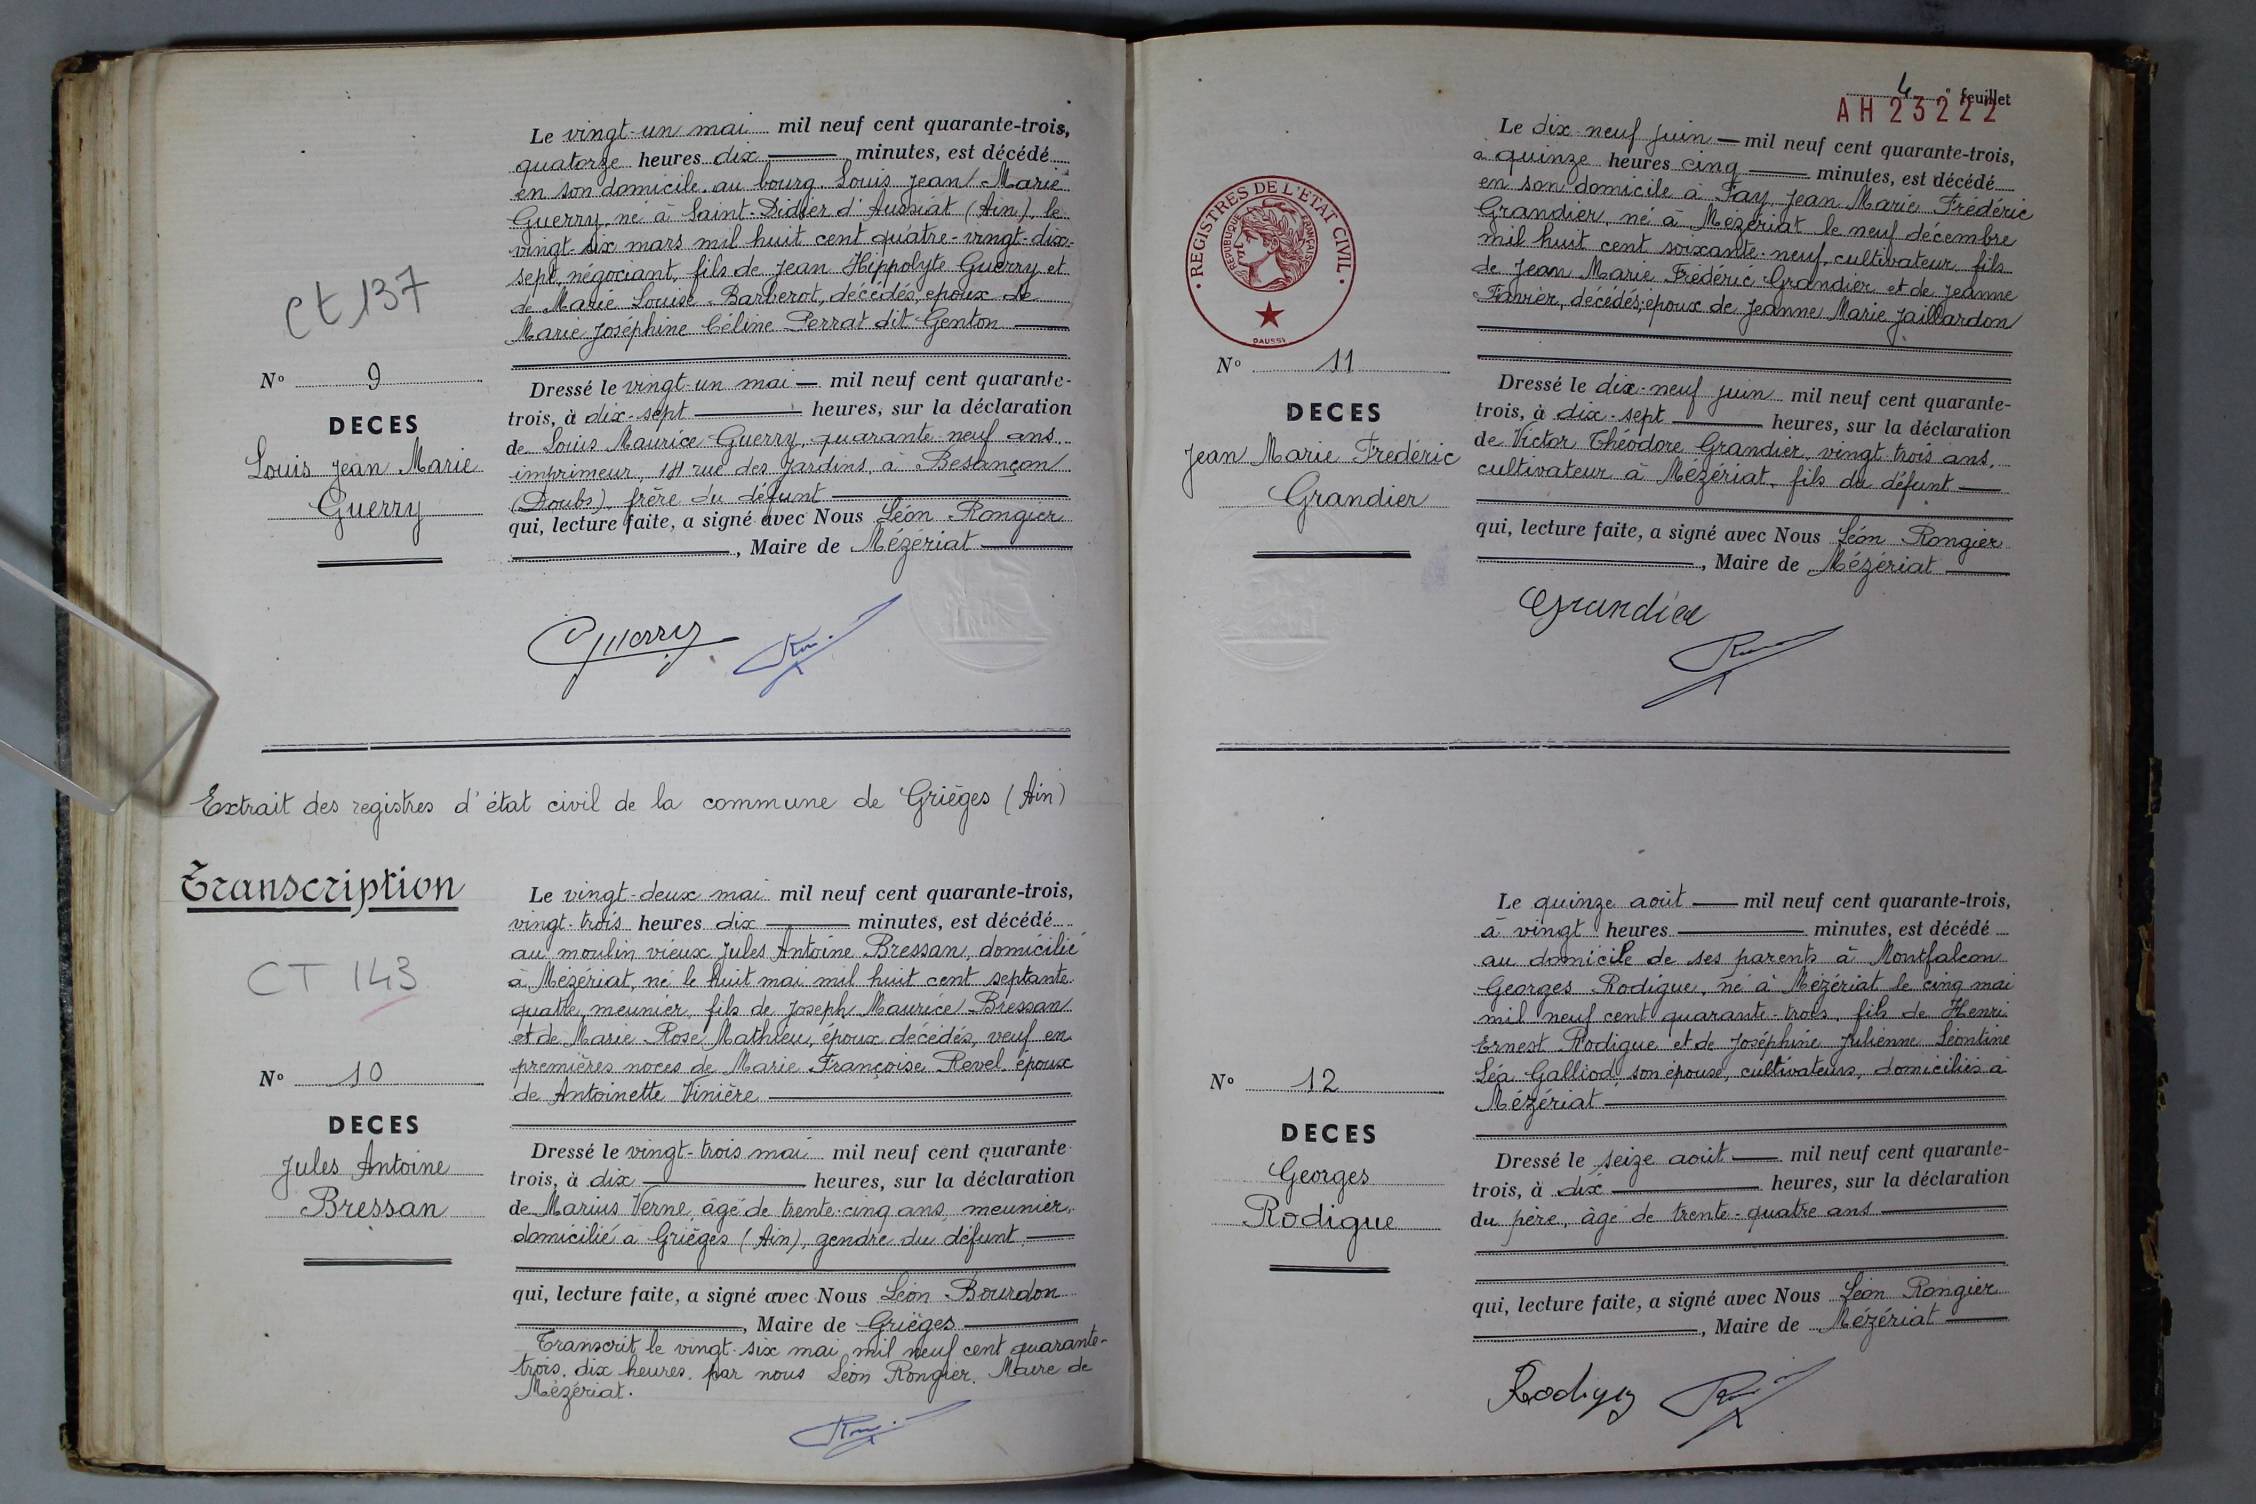 Le vingt-un mai mil neuf cent quarante-trois,
quatorze heures dix minutes, est décédé
en son domicile au bourg Louis Jean Marie
Guerry, né à Saint-Didier d'Aussiat (Ain), le
vingt-six mars mil huit cent quatre-vingt-dix-
sept, négociant, fils de Jean Hippolyte Guerry et
de Marie Louise Barberot, décédés, époux de
Marie Joséphine Céline Perrat dit Genton
Ct 137
N° 9
DECES
Louis Jean Marie
Guerry
Dressé le vingt-un mai mil neuf cent quarante-
trois, à dix-sept heures, sur la déclaration
de Louis Maurice Guerry, quarante-neuf ans,
imprimeur, rue des Jardins, à Besançon
(Doubs), frère du défunt
qui, lecture faite, a signé avec Nous Léon Rongier
, Maire de Mézériat
Guerry
Extrait des registres d'état civil de la commune de Grièges (Ain)
Transcription
CT 143
N° 10
DECES
Jules Antoine
Bressan
Le vingt-deux mai mil neuf cent quarante-trois,
vingt-trois heures dix minutes, est décédé
au moulin vieux Jules Antoine Bressan, domicilié
à Mézériat, né le huit mai mil huit cent septante
quatre, meunier, fils de Joseph Maurice Bressan
et de Marie Rose Mathieu, époux décédés, veuf en
premières noces de Marie Françoise Revel, époux
de Antoinette Vinière
Dressé le vingt-trois mai mil neuf cent quarante-
trois, à dix heures, sur la déclaration
de Marius Verne, âgé de trente-cinq ans, meunier,
domicilié à Grièges (Ain), gendre du défunt
qui, lecture faite, a signé avec Nous Léon Bourdon
, Maire de Grièges
Transcrit le vingt-six mai mil neuf cent quarante-
trois, dix heures, par nous Léon Rongier, Maire de
Mézériat.
4° feuillet
AH 23222
REGISTRES DE L'ETAT CIVIL
REPUBLIQUE FRANÇAISE
DAUSSY
N° 11
DECES
Jean Marie Frédéric
Grandier
Le dix-neuf juin mil neuf cent quarante-trois,
à quinze heures cinq minutes, est décédé
en son domicile à Fay, Jean Marie Frédéric
Grandier, né à Mézériat le neuf décembre
mil huit cent soixante-neuf, cultivateur, fils
de Jean Marie Frédéric Grandier et de Jeanne
Favrier, décédés, époux de Jeanne Marie Jaillardon
Dressé le dix-neuf juin mil neuf cent quarante-
trois, à dix-sept heures, sur la déclaration
de Victor Théodore Grandier, vingt-trois ans,
cultivateur à Mézériat, fils du défunt
qui, lecture faite, a signé avec Nous Léon Rongier
, Maire de Mézériat
Grandier
N° 12
DECES
Georges
Rodigue
Le quinze août mil neuf cent quarante-trois,
à vingt heures minutes, est décédé
au domicile de ses parents à Montfalcon
Georges Rodigue, né à Mézériat le cinq mai
mil neuf cent quarante-trois, fils de Henri
Ernest Rodigue et de Joséphine Julienne Léontine
Léa Galliod, son épouse, cultivateurs, domiciliés à
Mézériat
Dressé le seize août mil neuf cent quarante-
trois, à dix heures, sur la déclaration
du père, âgé de trente-quatre ans
qui, lecture faite, a signé avec Nous Léon Rongier
, Maire de Mézériat